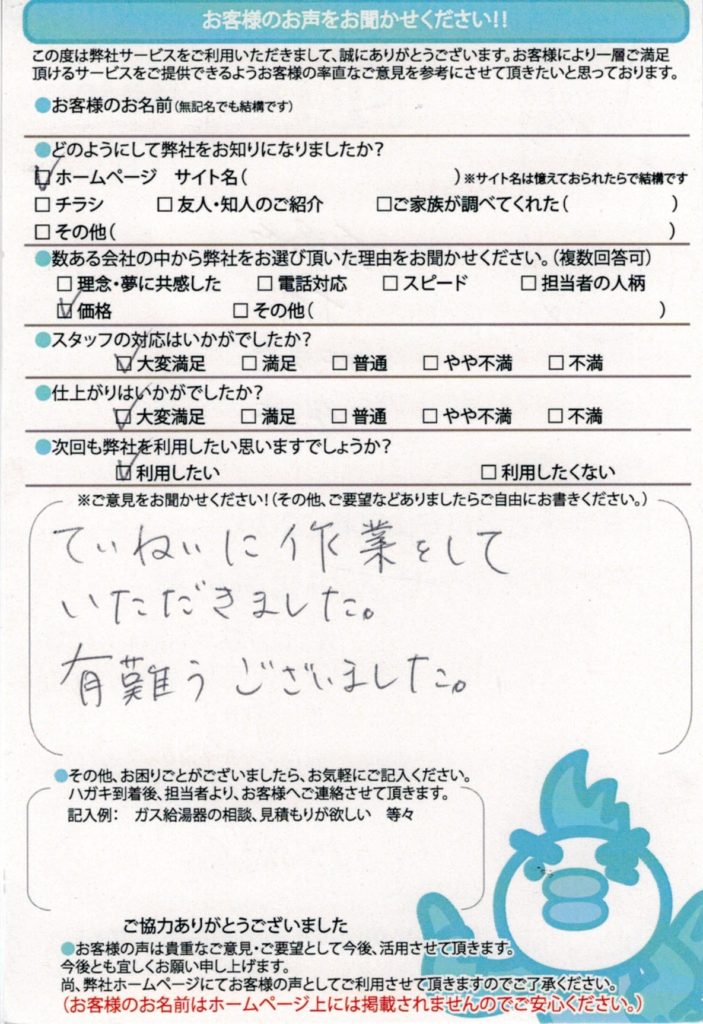 お客様のお声をお聞かせください!!
この度は弊社サービスをご利用いただきまして、誠にありがとうございます。お客様により一層ご満足
頂けるサービスをご提供できるようお客様の率直なご意見を参考にさせて頂きたいと思っております。
●お客様のお名前(無記名でも結構です)
●どのようにして弊社をお知りになりましたか?
☑ホームページ サイト名( )※サイト名は憶えておられたらで結構です
□チラシ □友人・知人のご紹介 □ご家族が調べてくれた( )
□その他( )
●数ある会社の中から弊社をお選び頂いた理由をお聞かせください。(複数回答可)
□理念・夢に共感した □電話対応 □スピード □担当者の人柄
☑価格 □その他( )
●スタッフの対応はいかがでしたか?
☑大変満足 □満足 □普通 □やや不満 □不満
●仕上がりはいかがでしたか?
☑大変満足 □満足 □普通 □やや不満 □不満
●次回も弊社を利用したい思いますでしょうか?
☑利用したい □利用したくない
※ご意見をお聞かせください!(その他、ご要望などありましたらご自由にお書きください。)
ていねいに作業をして
いただきました。
有難うございました。
●その他、お困りごとがございましたら、お気軽にご記入ください。
ハガキ到着後、担当者より、お客様へご連絡させて頂きます。
記入例: ガス給湯器の相談、見積もりが欲しい 等々
ご協力ありがとうございました
●お客様の声は貴重なご意見・ご要望として今後、活用させて頂きます。
今後とも宜しくお願い申し上げます。
尚、弊社ホームページにてお客様の声としてご利用させて頂きますのでご了承ください。
(お客様のお名前はホームページ上には掲載されませんのでご安心ください。)